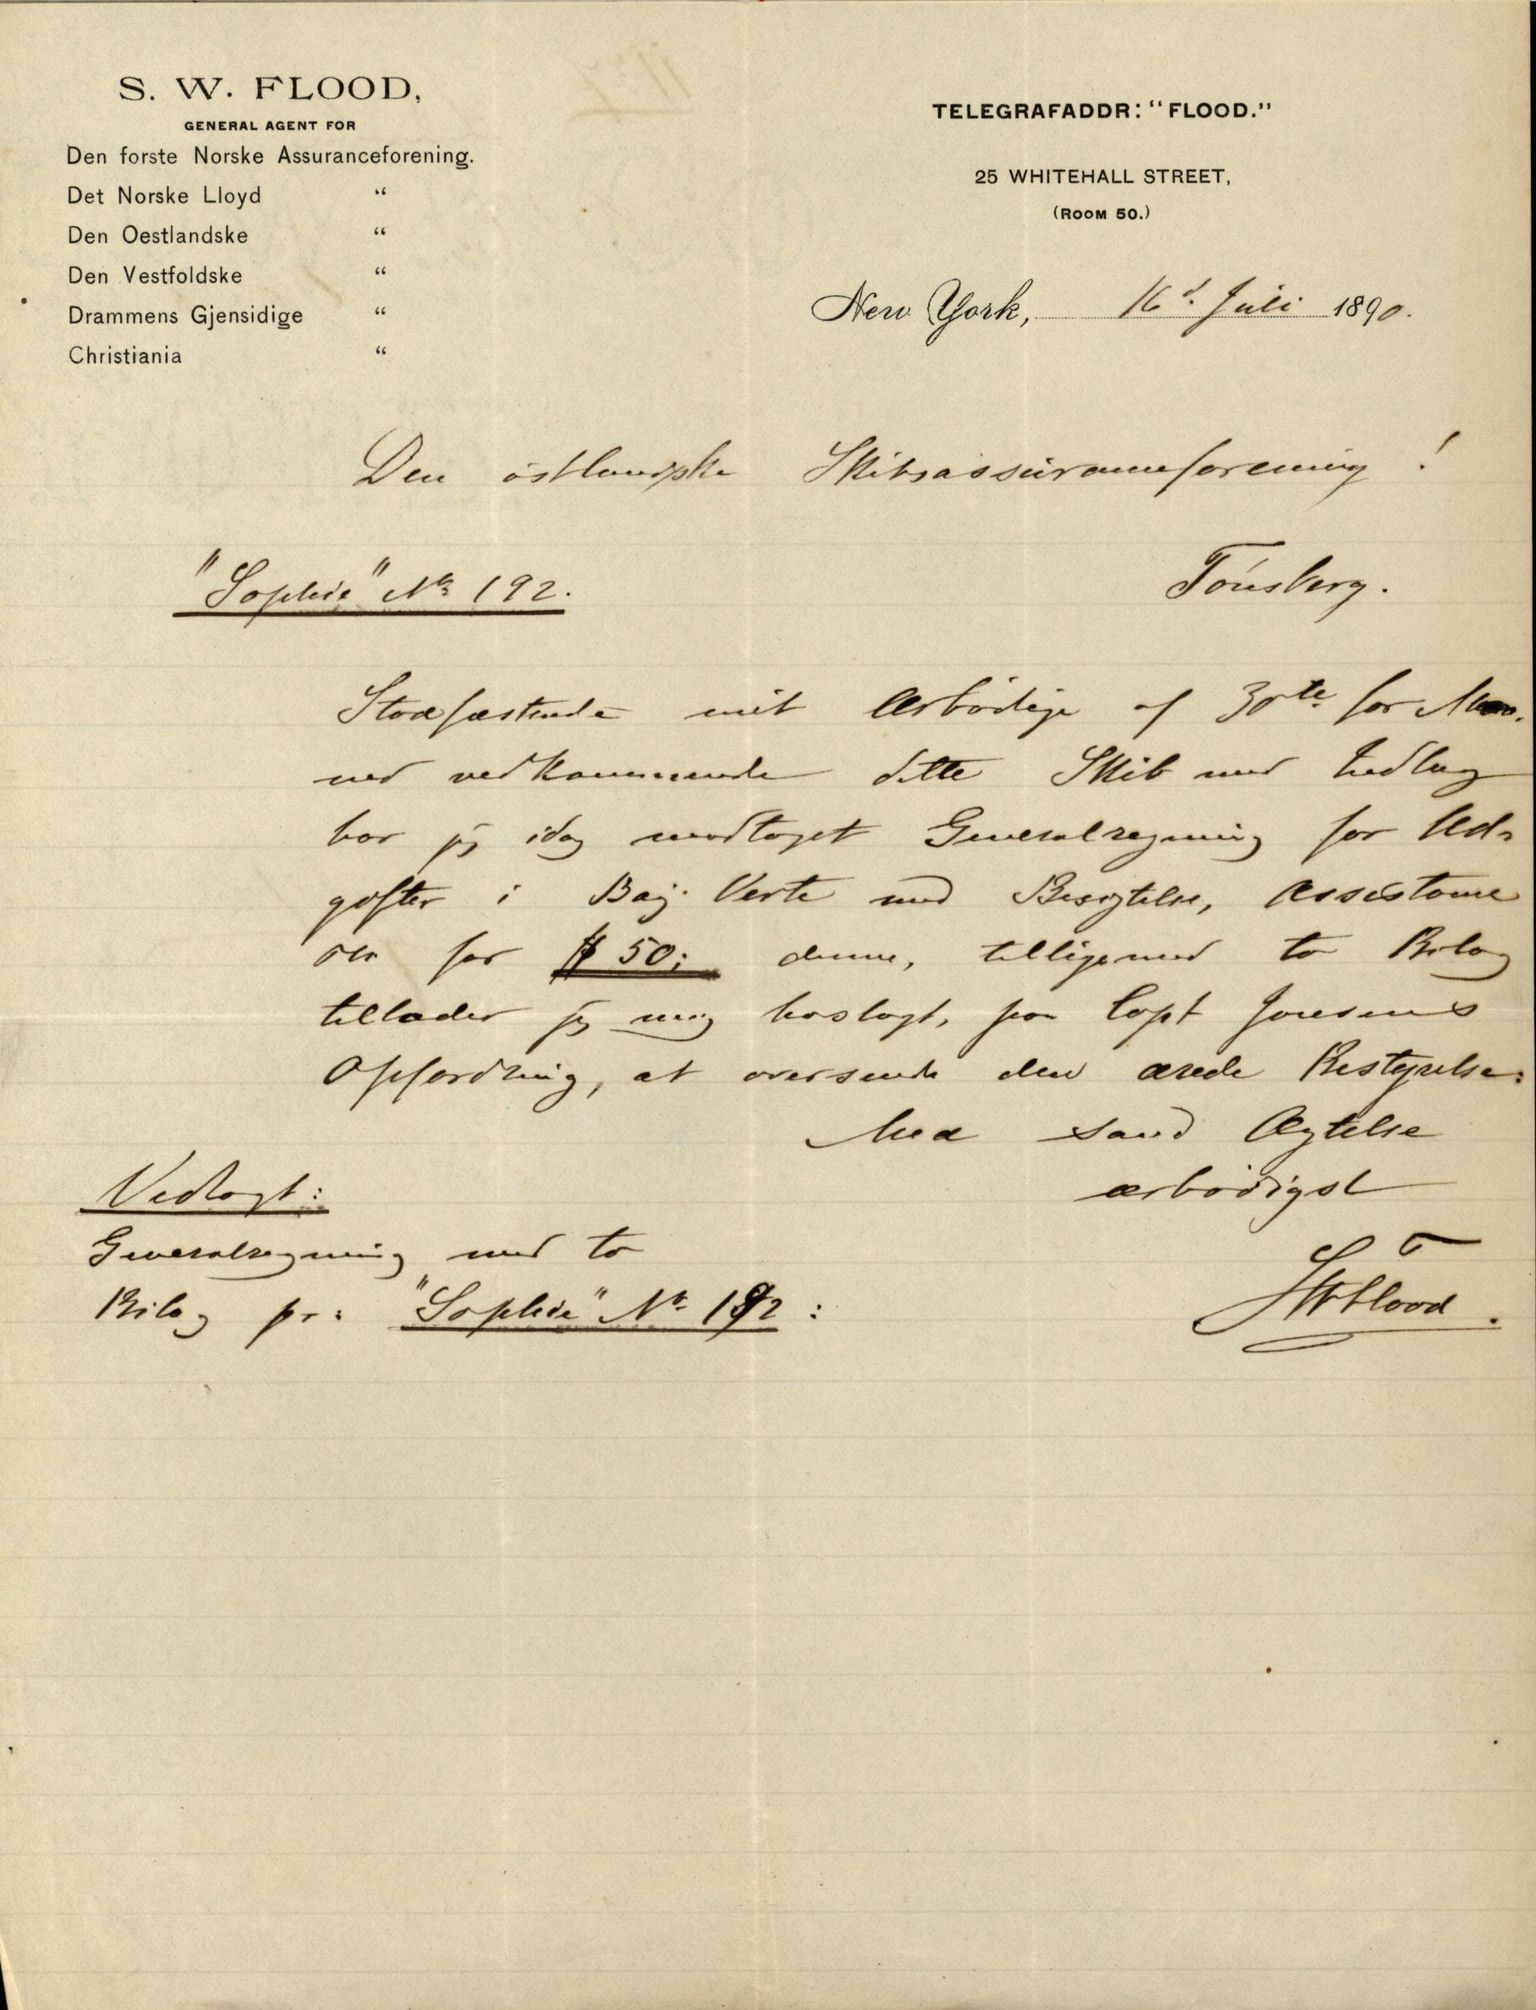 S. W. FLOOD,
GENERAL AGENT FOR
Den forste Norske Assuranceforening.
Det Norske Lloyd "
Den Oestlandske "
Den Vestfoldske "
Drammens Gjensidige "
Christiania "
TELEGRAFADDR: "FLOOD."
25 WHITEHALL STREET,
(ROOM 50.)
New York, 16d. Juli 1890.
Den östlandske Skibsassuranceforening!
"Sophie" No 192.
Tönsberg.
Stadfæstende mit Ærbödige af 30te for Maa-
ned vedkommende dette Skib med Indlæg
har jeg idag modtaget Generalregning for Ud-
gifter i Baj Verte med Besigtelse, Assistance
etc for $ 50; denne, tilligemed to Bilag
tillader jeg mig hoslagt, paa Capt Jensens
Opfordring, at oversende den ærede Bestyrelse:
Med sand Agtelse
ærbödigst
SWFlood.
Vedlagt:
Generalregning med to
Bilag pr: "Sophie" No 192: